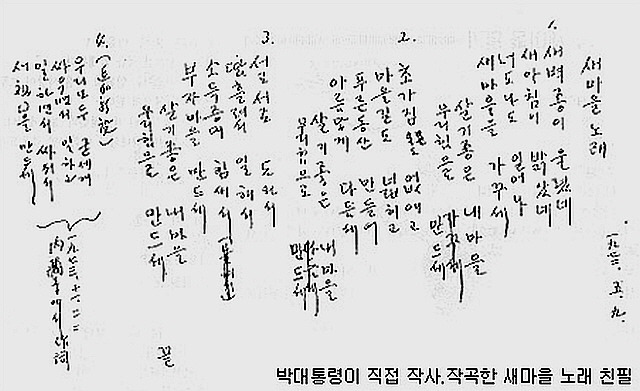 새마을 노래
一九七二. 五. 九.
1.
새벽종이 울렸네
새아침이 밝았네
너도나도 일어나
새마을을 가꾸세
살기좋은 내마을
우리힘으로 만드세
2.
초가집 없애고
마을길도 넓히고
푸른동산 만들어
아름답게 다듬세
살기좋은 내마을
우리힘으로 만드세
3.
서로서로 도와서
땀흘려서 일해서
소득증대 힘써서
부자마을 만드세
살기좋은 내마을
우리힘으로 만드세
끝
4.
우리모두 굳세게
싸우면서 일하고
일하면서 싸워서
새 만드세
박대통령이 직접 작사.작곡한 새마을 노래 친필